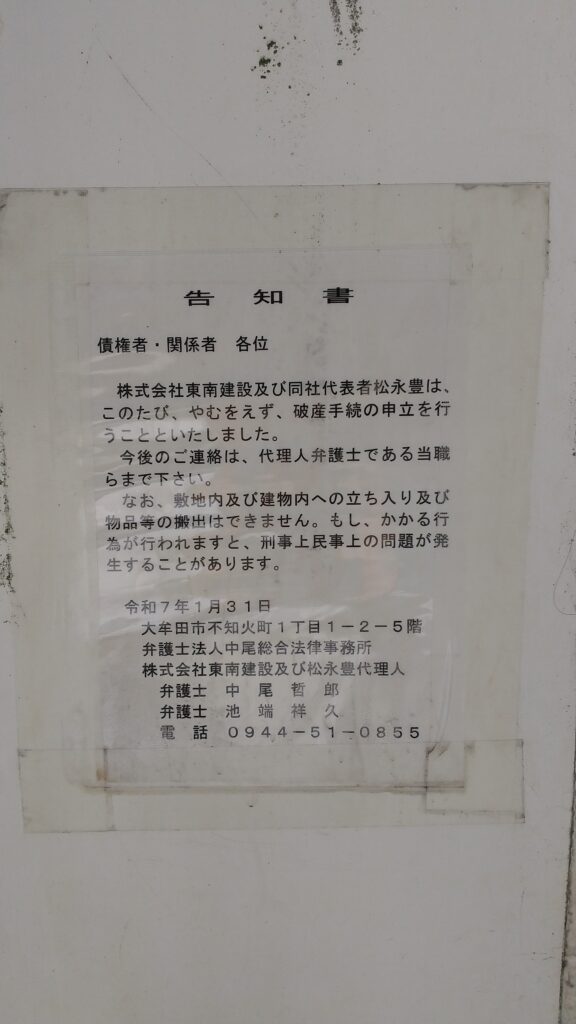 告　知　書
債権者・関係者　各位
株式会社東南建設及び同社代表者松永豊は、
このたび、やむをえず、破産手続の申立を行
うことといたしました。
今後のご連絡は、代理人弁護士である当職
らまで下さい。
なお、敷地内及び建物内への立ち入り及び
物品等の搬出はできません。もし、かかる行
為が行われますと、刑事上民事上の問題が発
生することがあります。
令和７年１月３１日
大牟田市不知火町１丁目１－２－５階
弁護士法人中尾総合法律事務所
株式会社東南建設及び松永豊代理人
弁護士　中　尾　哲　郎
弁護士　池　端　祥　久
電　話　０９４４－５１－０８５５